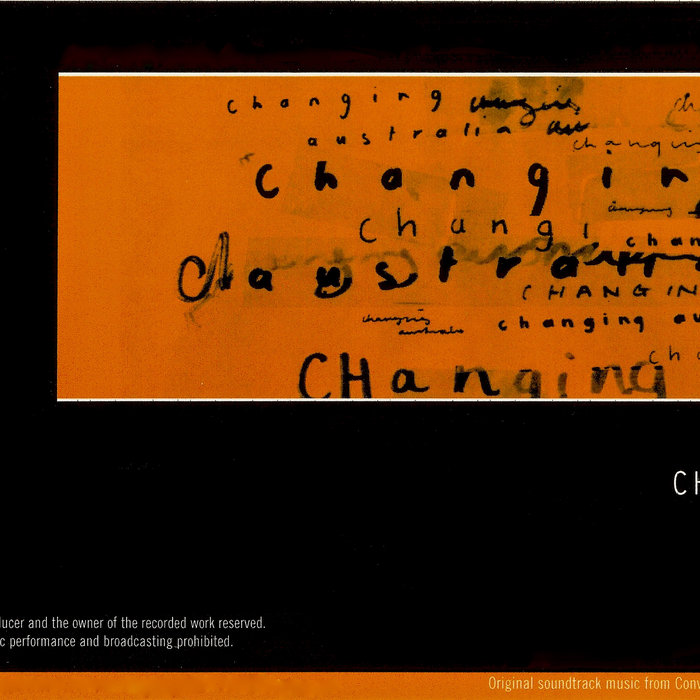 changing changing ch
australia au
changin
changin
changing
changi chan
austra
CHANGIN
changing
australia
changing au
ch
CHanging
CH
ucer and the owner of the recorded work reserved.
c performance and broadcasting prohibited.
Original soundtrack music from Com